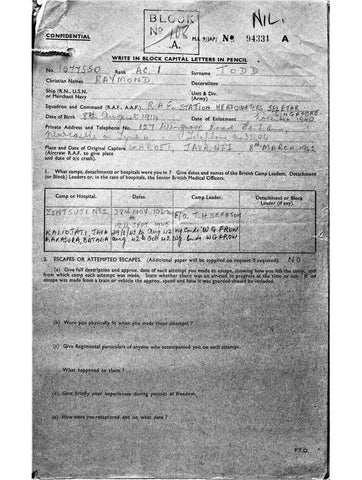 BLOCK
Nº 108
A.
NIL.
CONFIDENTIAL
M.I. 9/JAP/ Nº 94331 A
WRITE IN BLOCK CAPITAL LETTERS IN PENCIL
No. 1077550 Rank AC 1 Surname TODD
Christian Names RAYMOND
Ship (R.N., U.S.N. or Merchant Navy) Unit & Div. (Army)
Squadron and Command (R.A.F., A.A.F.) R.A.F. STATION HEADQUARTERS SELETAR SINGAPORE
Date of Birth 8th August 1914 Date of Enlistment 1940
Private Address and Telephone No. 127 Road
Newcastle on Tyne
Place and Date of Original Capture GAROET, JAVA, NEI 8th MARCH 1942
(Aircrew R.A.F. to give place and date of a/c crash).
1. What camps, detachments or hospitals were you in? Give dates and names of the British Camp Leaders, Detachment (or Block) Leaders or, in the case of hospitals, the Senior British Medical Officers.
Camp or Hospital. Dates. Camp Leader. Detachment or Block Leader (if any).
ZENTSUJI Nº2 28th NOV. 1942 F/O. T.H. SEPHTON
SEPT 1945
KALIDJATI, JAVA W G FROW
W G FROW
2. ESCAPES OR ATTEMPTED ESCAPES. (Additional paper will be supplied on request if required). NO
(a) Give full description and approx. date of each attempt you made to escape, showing how you left the camp, and from which camp each attempt was made. State whether there was an overall in progress at the time or not. If an escape was made from a train or vehicle the approx. speed and how it was guarded should be included.
(b) Were you physically fit when you made those attempts?
(c) Give Regimental particulars of anyone who accompanied you on each attempt.
What happened to them?
(d) Give briefly your experiences during periods of freedom.
(e) How were you recaptured and on what date?
P.T.O.